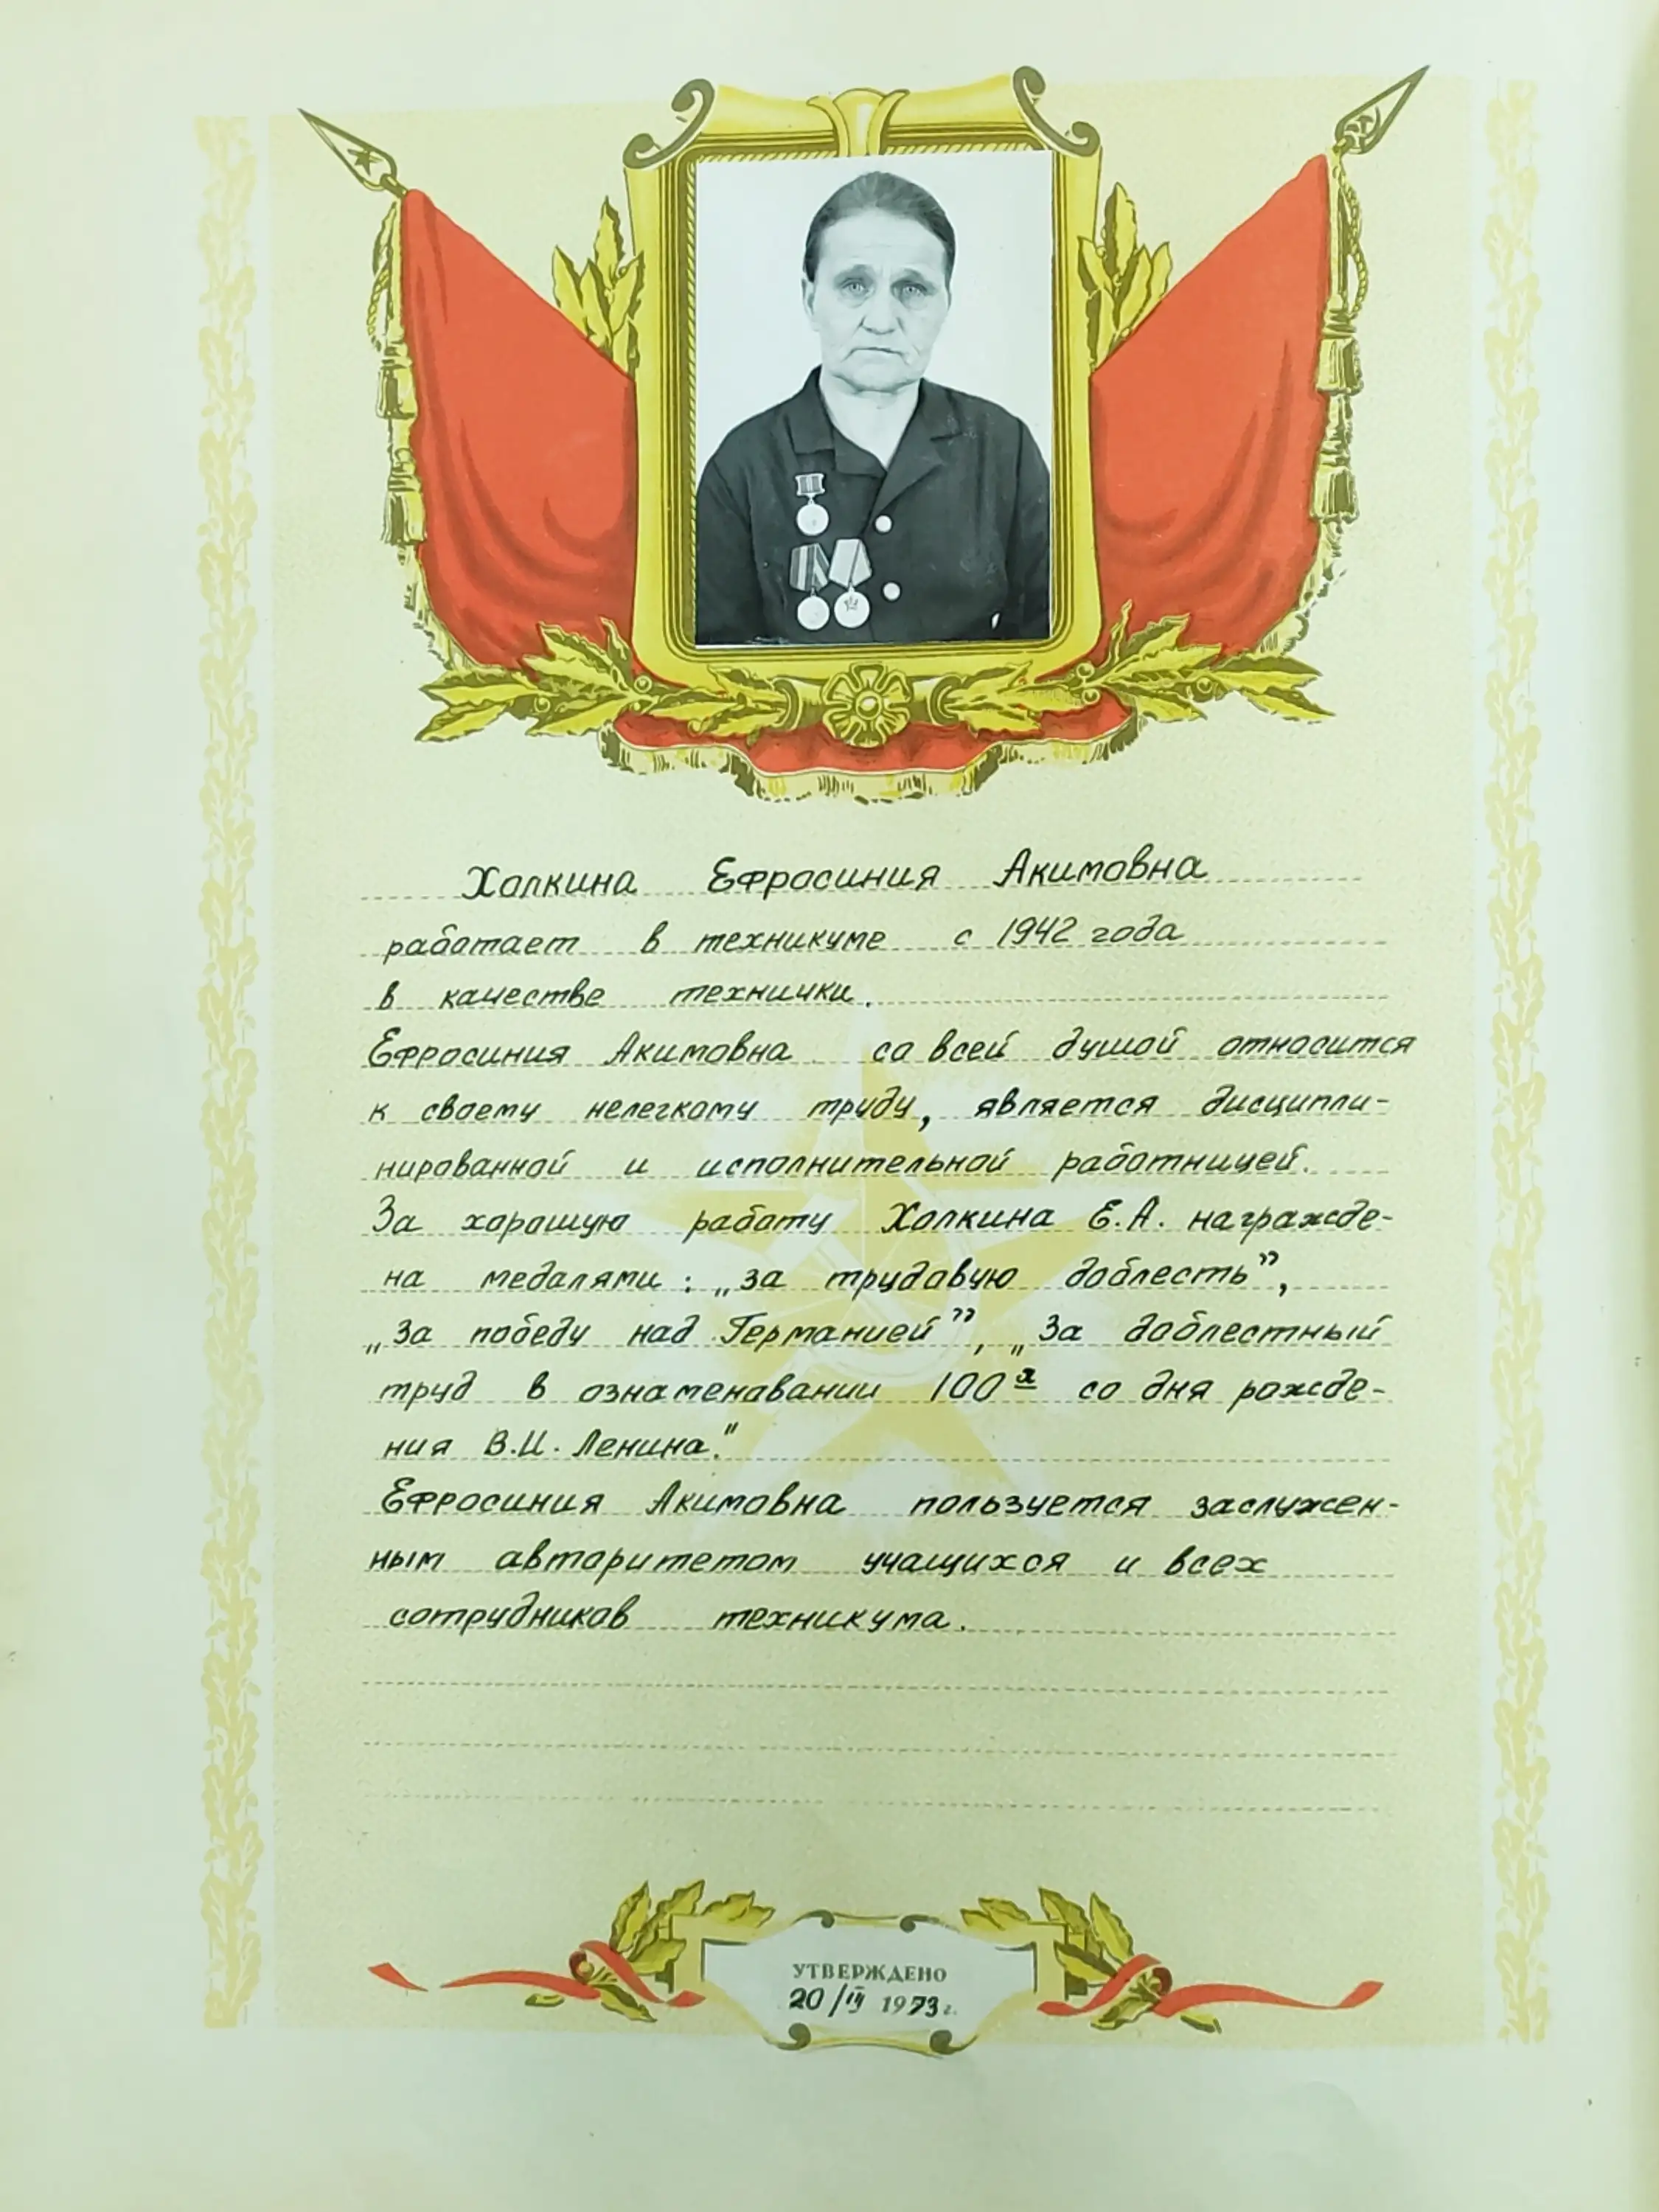 Холкина Ефросиния Акимовна
работает в техникуме с 1942 года
в качестве технички.
Ефросиния Акимовна со всей душой относится
к своему нелегкому труду, является дисципли-
нированной и исполнительной работницей.
За хорошую работу Холкина Е.А. награжде-
на медалями: „за трудовую доблесть”,
„За победу над Германией”, „За доблестный
труд в ознаменовании 100я со дня рожде-
ния В.И. Ленина."
Ефросиния Акимовна пользуется заслужен-
ным авторитетом учащихся и всех
сотрудников техникума.
УТВЕРЖДЕНО
20/IV 1973 г.